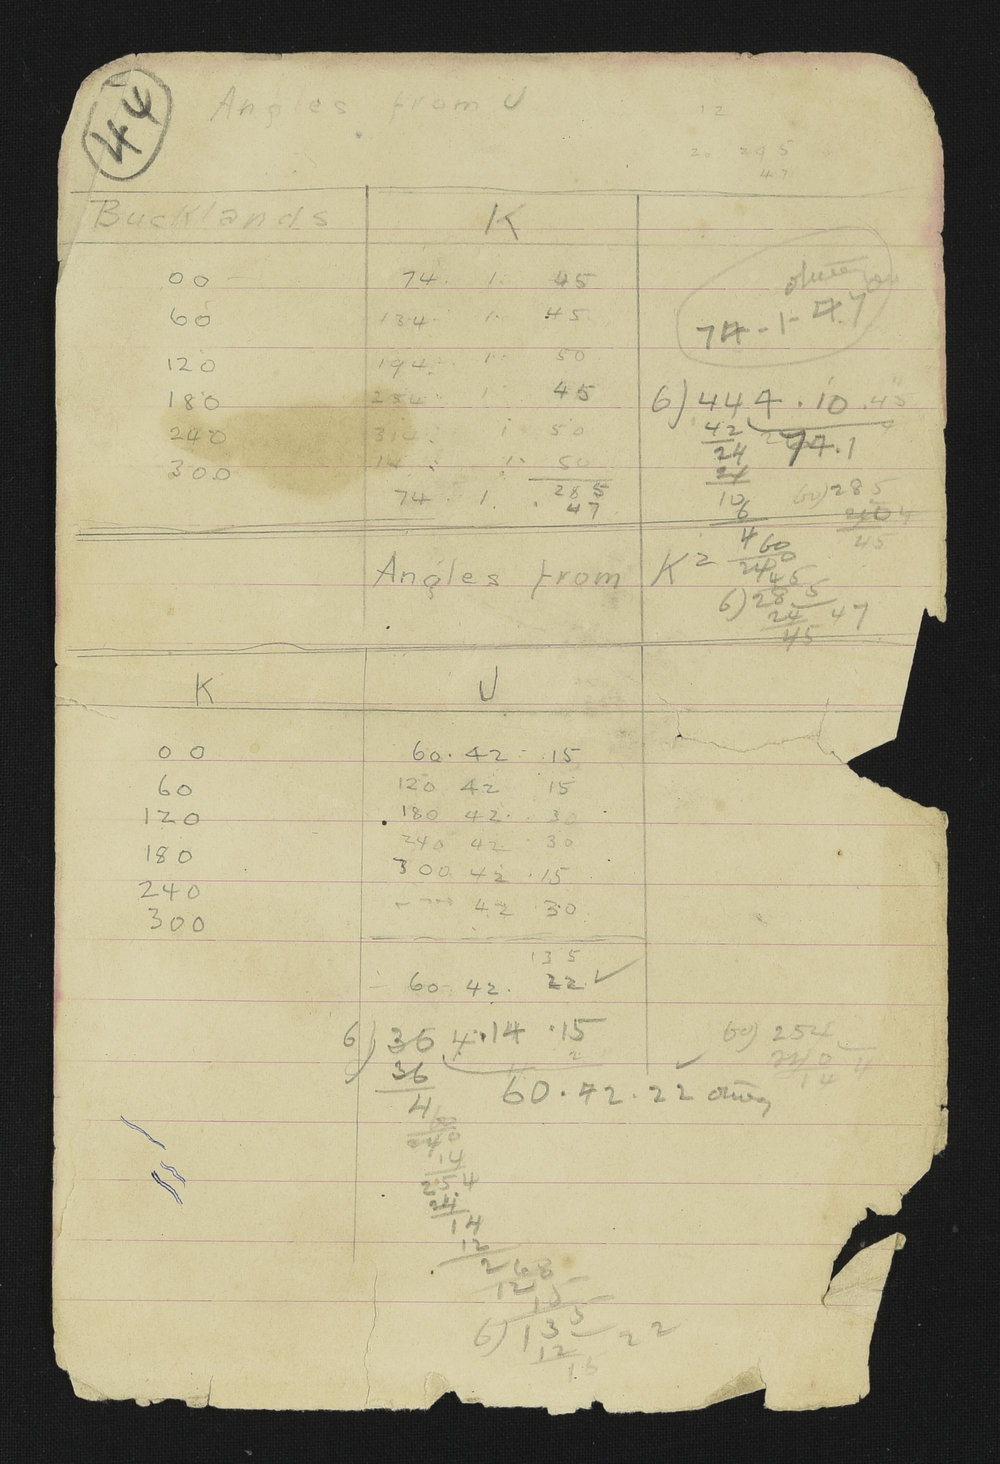 44
Angles from U
12
20 285
47
Bucklands K
00 74. 1. 45
60 134. 1. 45
120 194. 1. 50
180 254. 1 45
240 314. 1 50
300 14. 1. 50
285
74 . 1. 47
74-1-47
6)444.10.45
42 74.1
24
24
10
6
4
60
240
45
6)285 47
24
45
60)285
240 4
45
Angles from K
K U
00 60. 42 15
60 120 42 15
120 180 42. 30
180 240 42 30
240 300 42 .15
300 42 30
135
60 42. 22
6)364.14.15
36
60.42.22
4
60
240
14
254
24
14
12
2
120
15
6)135 22
12
15
60)254 4
240
14